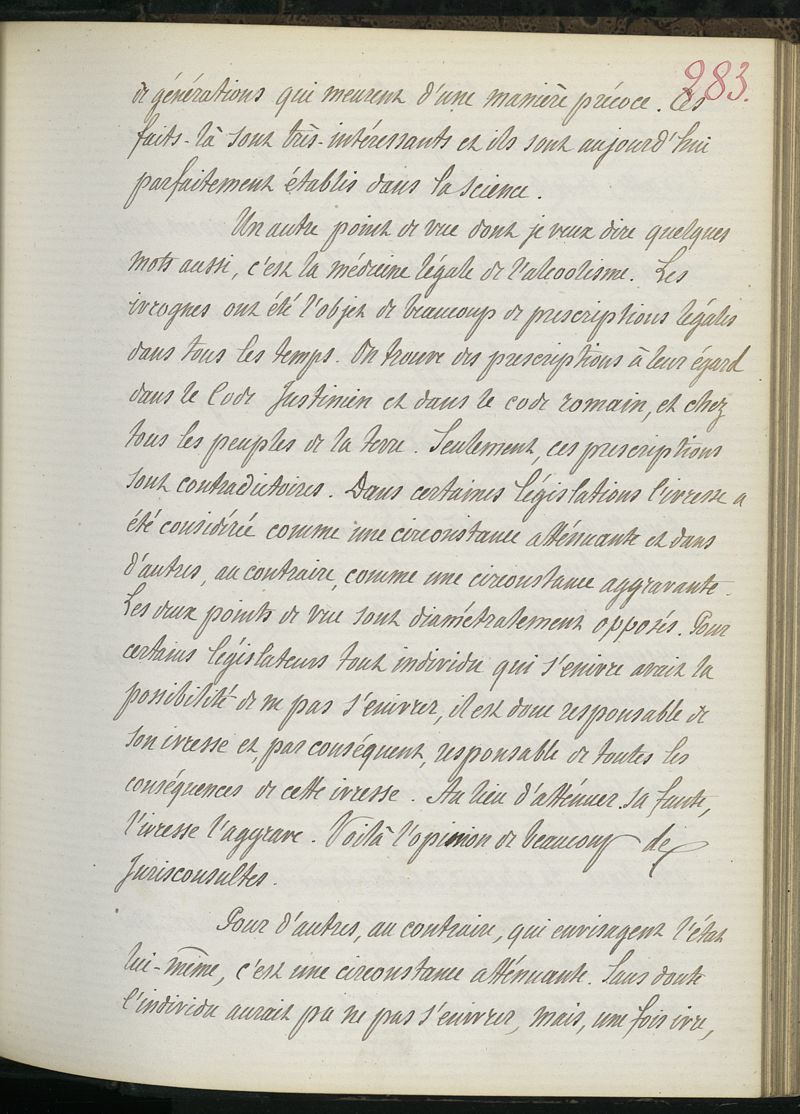 283.
de générations qui meurent d'une manière précoce. Ces
faits-là sont très-intéressants et ils sont aujourd'hui
parfaitement établis dans la science.
Un autre point de vue dont je veux dire quelques
mots aussi, c'est la médecine légale de l'alcoolisme. Les
ivrognes ont été l'objet de beaucoup de prescriptions légales
dans tous les temps. On trouve des prescriptions à leur égard
dans le Code Justinien et dans le code romain, et chez
tous les peuples de la terre. Seulement, ces prescriptions
sont contradictoires. Dans certaines législations l'ivresse a
été considérée comme une circonstance atténuante et dans
d'autres, au contraire, comme une circonstance aggravante.
Les deux points de vue sont diamétralement opposés. Pour
certains législateurs tout individu qui s'enivre avait la
possibilité de ne pas s'enivrer, il est donc responsable de
son ivresse et par conséquent, responsable de toutes les
conséquences de cette ivresse. Au lieu d'atténuer sa faute,
l'ivresse l'aggrave. Voilà l'opinion de beaucoup de
Jurisconsultes.
Pour d'autres, au contraire, qui envisagent l'état
lui-même, c'est une circonstance atténuante. Sans doute
l'individu aurait pu ne pas s'enivrer, mais, une fois ivre,